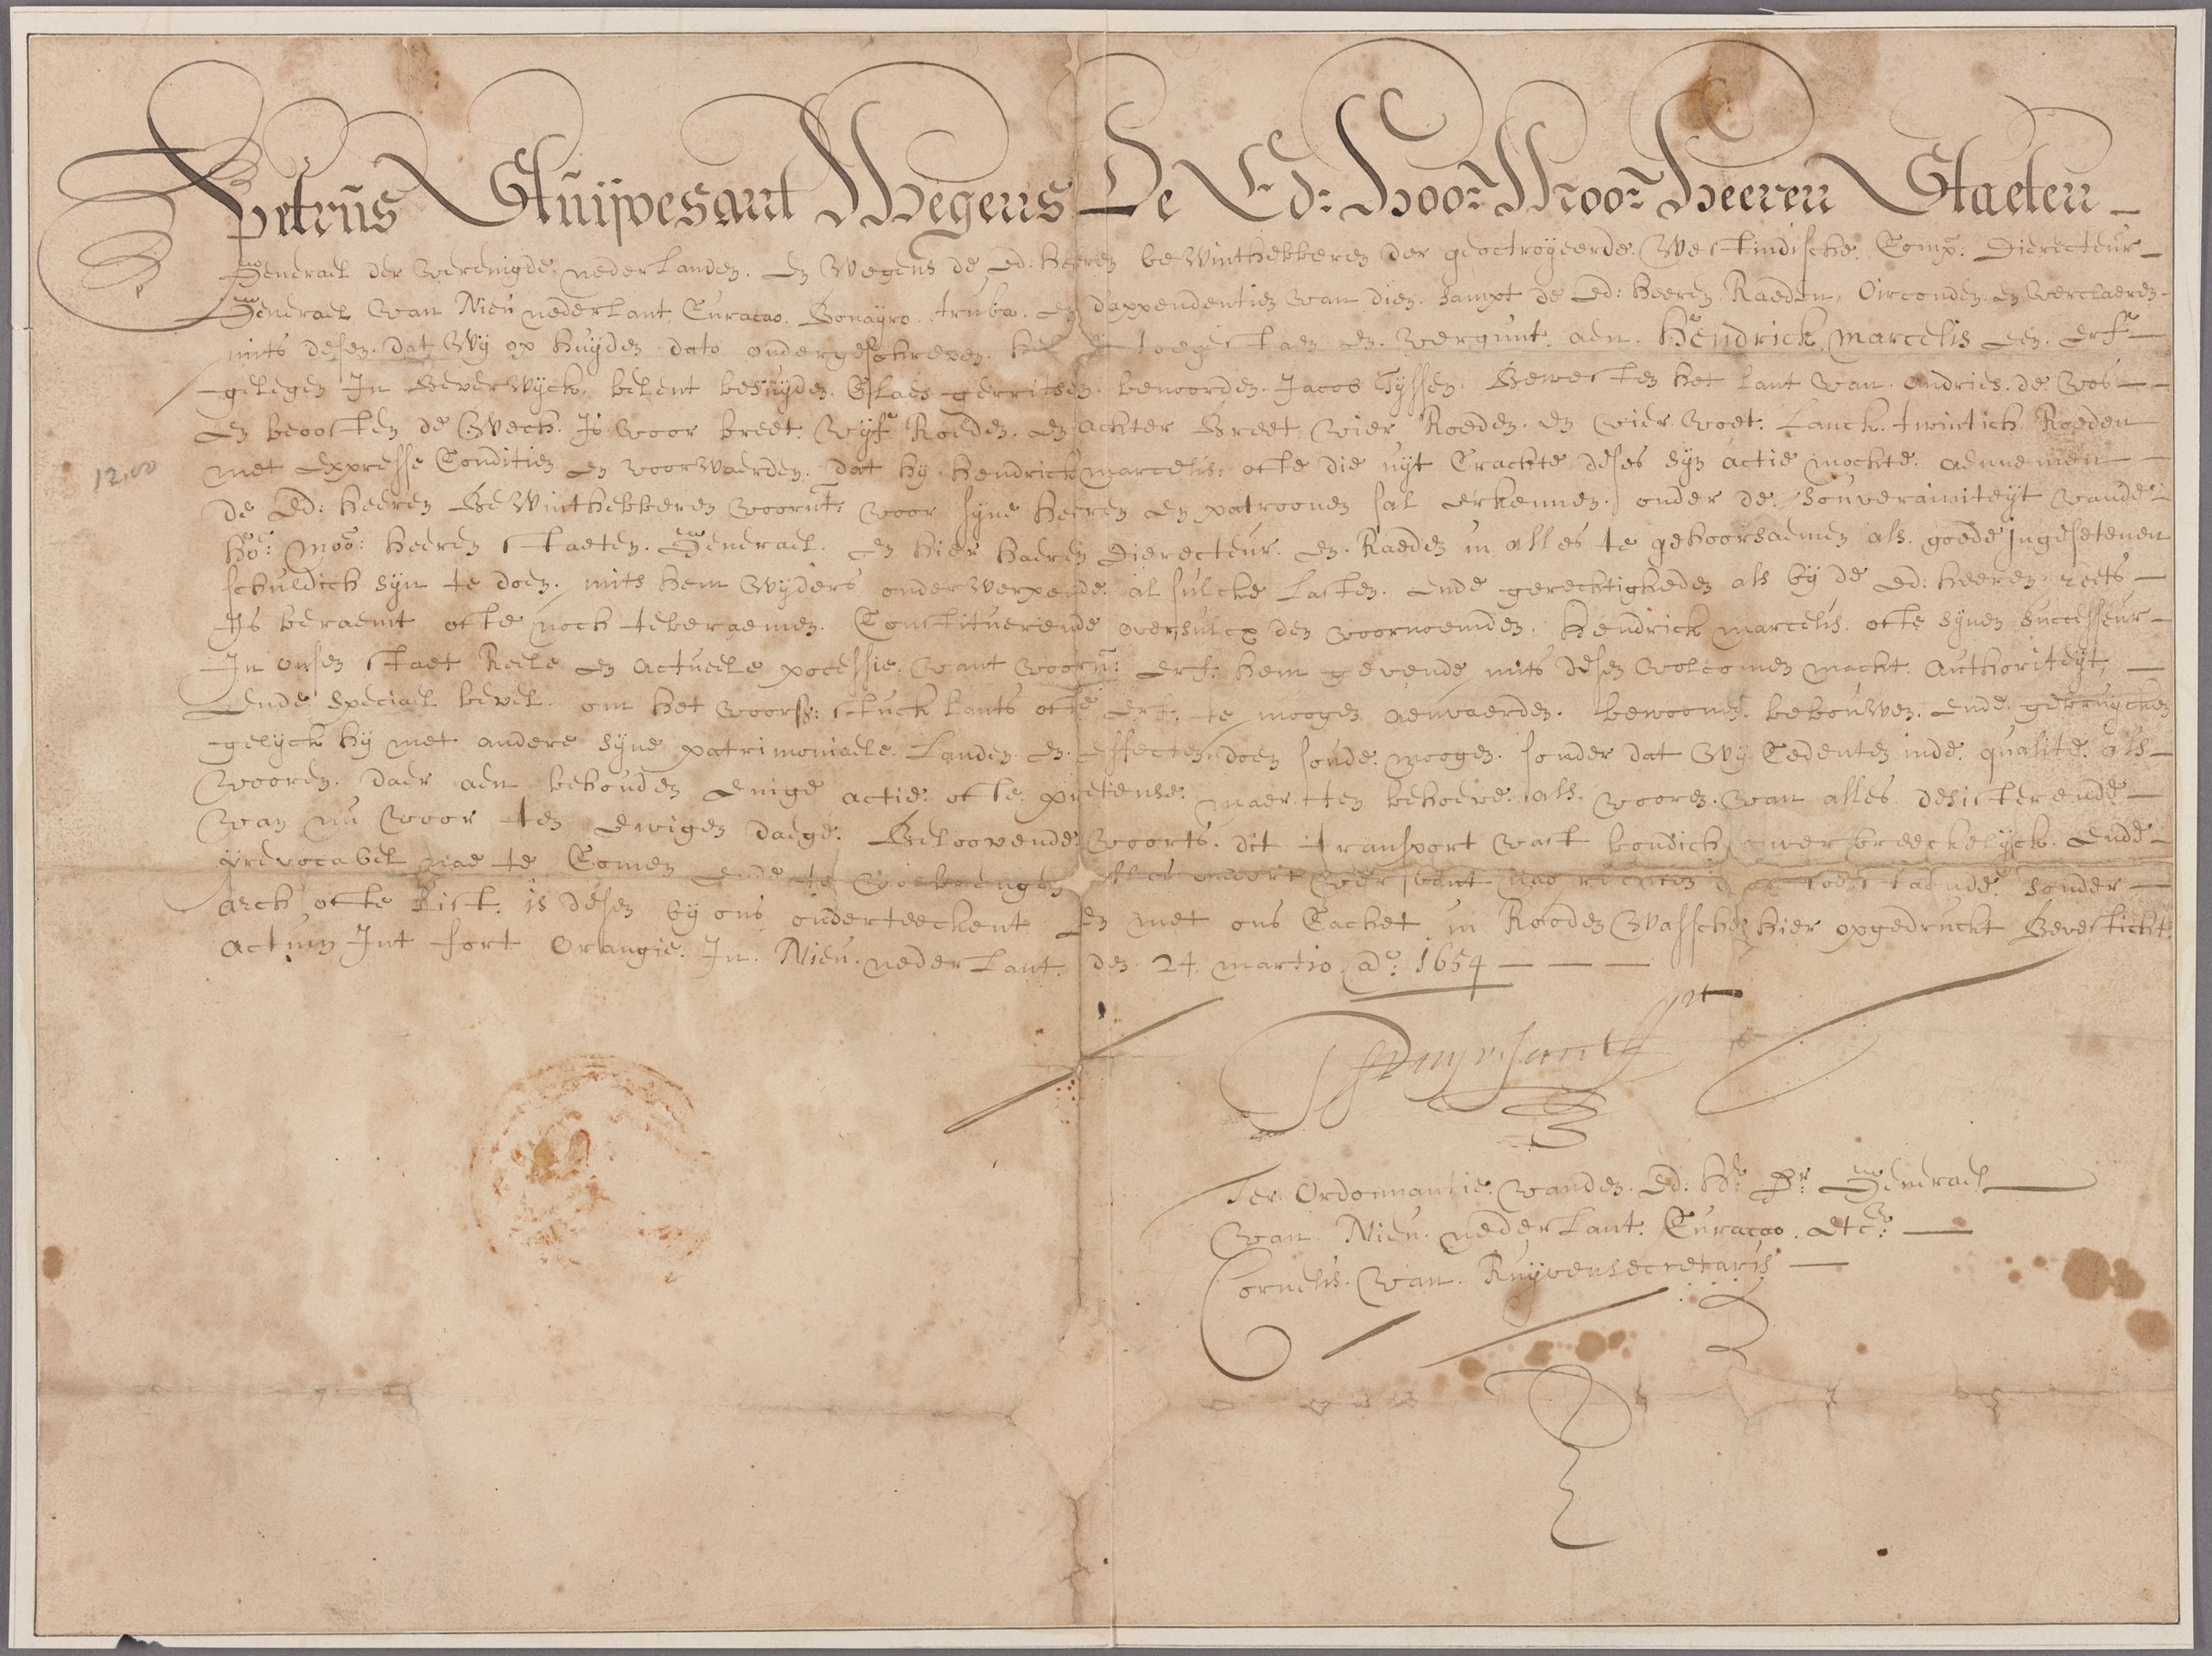 Petrus Stuijvesant Wegens De Ed: Hoo: Moo: Heeren Staeten
Generael der vereenigde nederlanden. en Wegens de Ed: Heeren beWinthebberen der geoctroyeerde Westindische Comp: Dierecteur
Generael van Nieu nederlant, Curacao, Bonayro, Aruba, en d'appendentien van dien. sampt de Ed: Heeren Raeden, Oirconden en verclaeren
mits desen. dat Wij op huyden dato ondergeschreven toegestaen en vergunt aen Hendrick marcelis een erf
gelegen In BeverWyck, belent besuyden Claes gerritsen benoorden Jacob Tyssen. Bewesten het lant van andries de Vos
en beoosten de Wech. Is voor breet vyf Roeden. en achter Breet vier Roeden en vier voet. Lanck twintich Roeden
12.00
met expresse Conditien en voorWaerden. dat hy hendrick marcelis. ofte die uyt Crachte deses syn actie mochte aennemen
de Ed: Heeren BeWinthebberen voornt: voor syne heeren en patroonen sal erkennen. onder de souverainiteyt vande
Ho: Moo: heeren staeten Generael. en hier haeren Dierecteur en Raeden in alles te gehoorsaemen als goede Ingesetenen
schuldich syn te doen. mits hem Wyders onderwerpende al sulcke lasten ende gerechtigheden als by de Ed: heeren reets
Is beraemt ofte noch te beraemen. Constituerende oversulcx den voornoemden Hendrick marcelis ofte synen successeur
In onsen staet Reele en actueele possessie van't voorn: erf. hem gevende mits desen volcomen macht Authoriteyt,
ende speciael bevel. om het voorss: stuck lants ofte erf te moogen aenvaerden. bewoonen. bebouwen. ende gebruycken
gelyck hy met andere syne patrimoniaele Landen en effecten doen soude moogen. sonder dat Wy Cedenten inde qualite als
vooren. daer aen behouden enige actie ofte pretense. maer ten behoeve als vooren van alles desisterende
van nu voor ten ewigen daege. Beloovende voorts dit transport vast bondich onverbreeckelyck ende
yrevocabel nae te Comen ende te volbrengen alles onder verbant nae rechten daer toe staende. sonder
arch ofte list. is desen by ons onderteeckent en met ons Cachet in Rooden Wassche hier opgedruckt Bevesticht
actum Int fort Orangie. In Nieu nederlant. den 24 martio Ao: 1654
P Stuyvesant
Ter Ordonnantie vanden Ed. Hr. Dr. Generael
van Nieu nederlant. Curacao. etc:
Cornelis van Ruyven secretaris